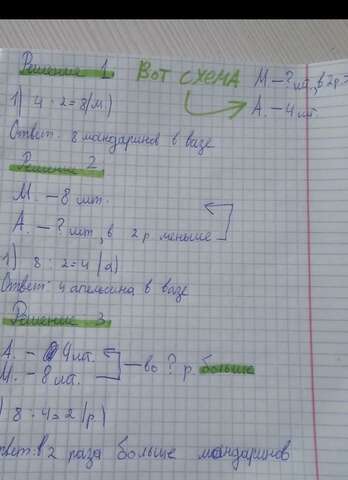 Решение 1 Вот схема М. – ? шт., в 2 р.
1) 4 · 2 = 8 (м.) А. – 4 шт.
Ответ: 8 мандаринов в вазе
Решение 2
М. – 8 шт.
А. – ? шт, в 2 р меньше
1) 8 : 2 = 4 (а)
Ответ: 4 апельсина в вазе
Решение 3
А. – 4 шт.
М. – 8 шт. – во ? р. больше
) 8 : 4 = 2 (р)
твет: в 2 раза больше мандаринов